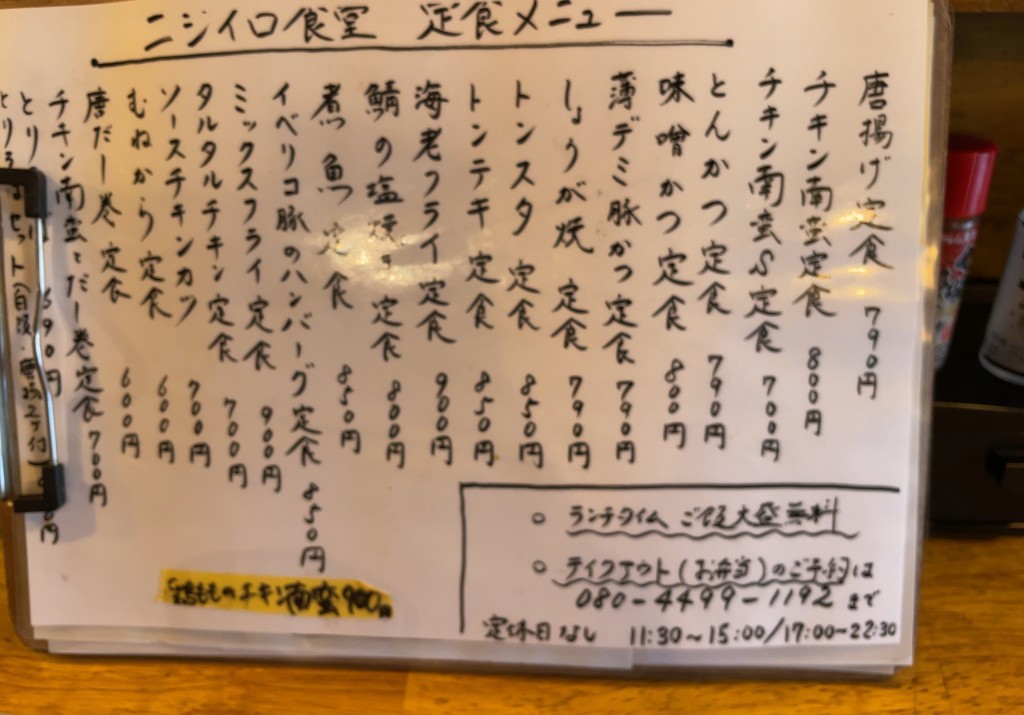 ニジイロ食堂 定食メニュー
唐揚げ定食 790円
チキン南蛮定食 800円
チキン南蛮S定食 700円
とんかつ定食 790円
味噌かつ定食 800円
薄デミ豚かつ定食 790円
しょうが焼 定食 790円
トンスタ 定食 850円
トンテキ 定食 850円
海老フライ定食 900円
鯖の塩焼き 定食 800円
煮魚 定食 850円
イベリコ豚のハンバーグ定食 850円
ミックスフライ定食 900円
タルタルチキン定食 700円
ソースチキンカツ 700円
むねから 定食 600円
唐だし巻 定食 600円
チキン南蛮とだし巻定食 700円
とり 690円
のチキン南蛮 900円
○ ランチタイム ご飯大盛無料
○ テイクアウト(お弁当)のご予約は
080-4499-1192 まで
定休日なし 11:30～15:00/17:00～22:30